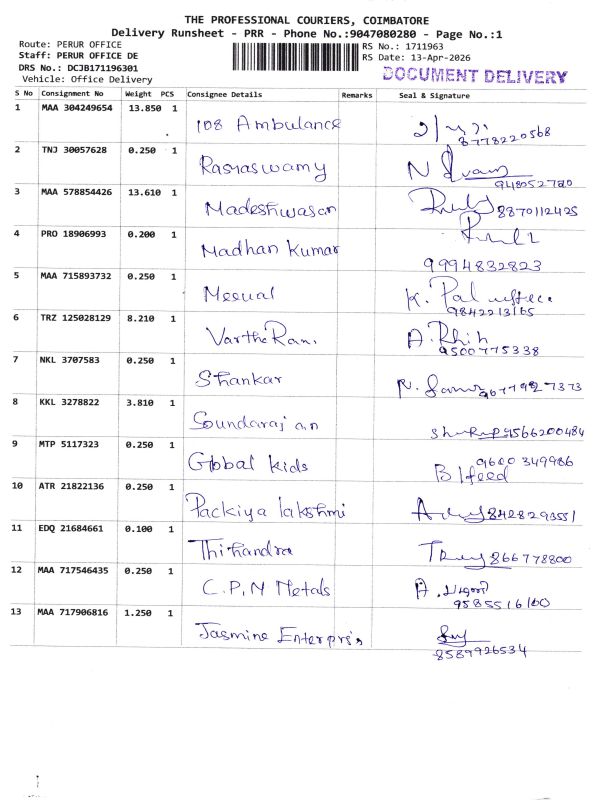 THE PROFESSIONAL COURIERS, COIMBATORE
Delivery Runsheet - PRR - Phone No.:9047080280 - Page No.:1
Route: PERUR OFFICE
RS No.: 1711963
Staff: PERUR OFFICE DE
RS Date: 13-Apr-2026
DRS No.: DCJB171196301
DOCUMENT DELIVERY
Vehicle: Office Delivery
S No Consignment No Weight PCS Consignee Details Remarks Seal & Signature
1 MAA 304249654 13.850 1 108 Ambulance
8778220568
2 TNJ 30057628 0.250 1 Rasraswamy
3 MAA 578854426 13.610 1 Madeshwasan 8870112425
4 PRO 18906993 0.200 1 Madhan Kumar
9994832823
5 MAA 715893732 0.250 1 Meenal
9842213165
6 TRZ 125028129 8.210 1 Varthe Rani
9500775338
7 NKL 3707583 0.250 1 Shankar 9677927373
8 KKL 3278822 3.810 1 Soundarajan
9566200484
9 MTP 5117323 0.250 1 Global kids 9600349986
10 ATR 21822136 0.250 1 Packiya lakshmi
11 EDQ 21684661 0.100 1 Thihandra 866778800
12 MAA 717546435 0.250 1 C.P.N Metals
9585516100
13 MAA 717906816 1.250 1 Jasmine Enterpris
8589926534